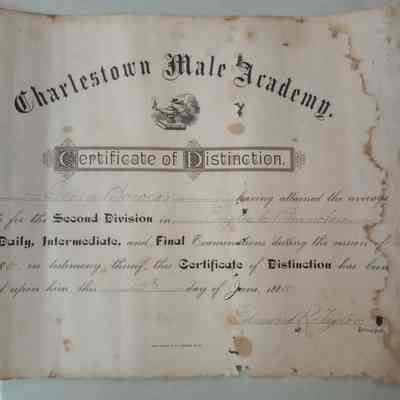 Charlestown Male Academy.
Certificate of Distinction.
having attained the average
for the Second Division in English Branches
Daily, Intermediate, and Final Examinations during the session of
in testimony thereof, this Certificate of Distinction has been
upon him, this day of June, 18
Edmund R. Taylor
Principal